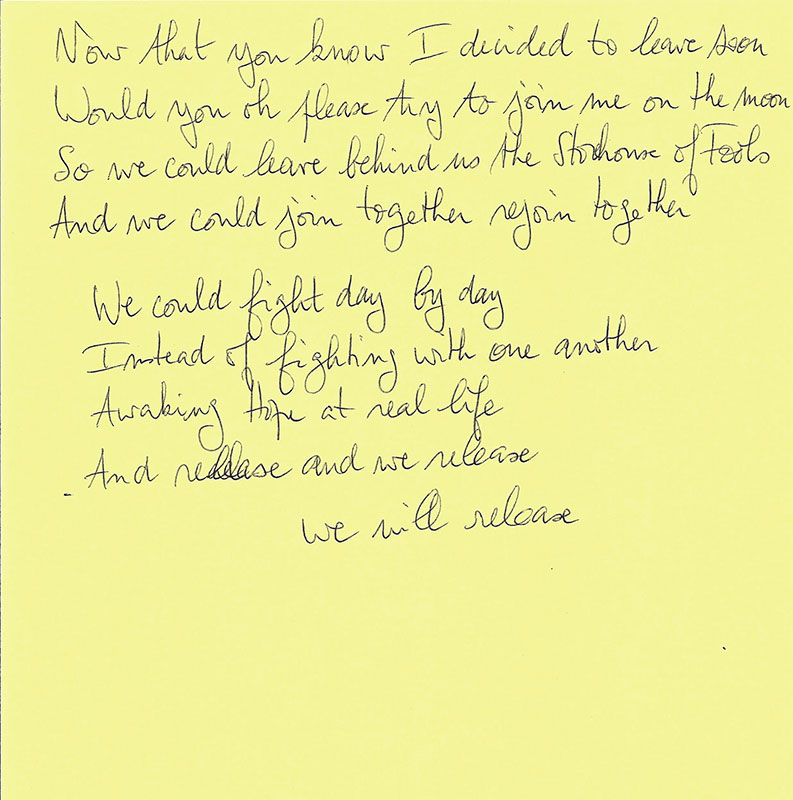 Now that you know I decided to leave soon
Would you oh please try to join me on the moon
So we could leave behind us the Storehouse of Fools
And we could join together rejoin together
We could fight day by day
Instead of fighting with one another
Awaking Hope at real life
And release and we release
We will release